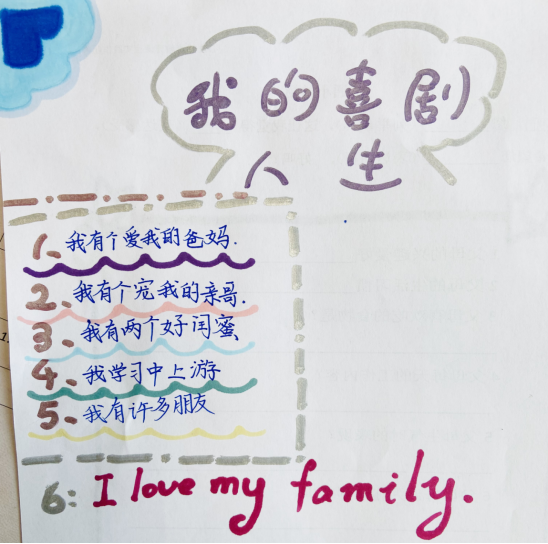 我的喜剧
人生
1、我有个爱我的爸妈.
2、我有个宠我的亲哥.
3、我有两个好闺蜜
4、我学习中上游
5、我有许多朋友
6: I love my family.